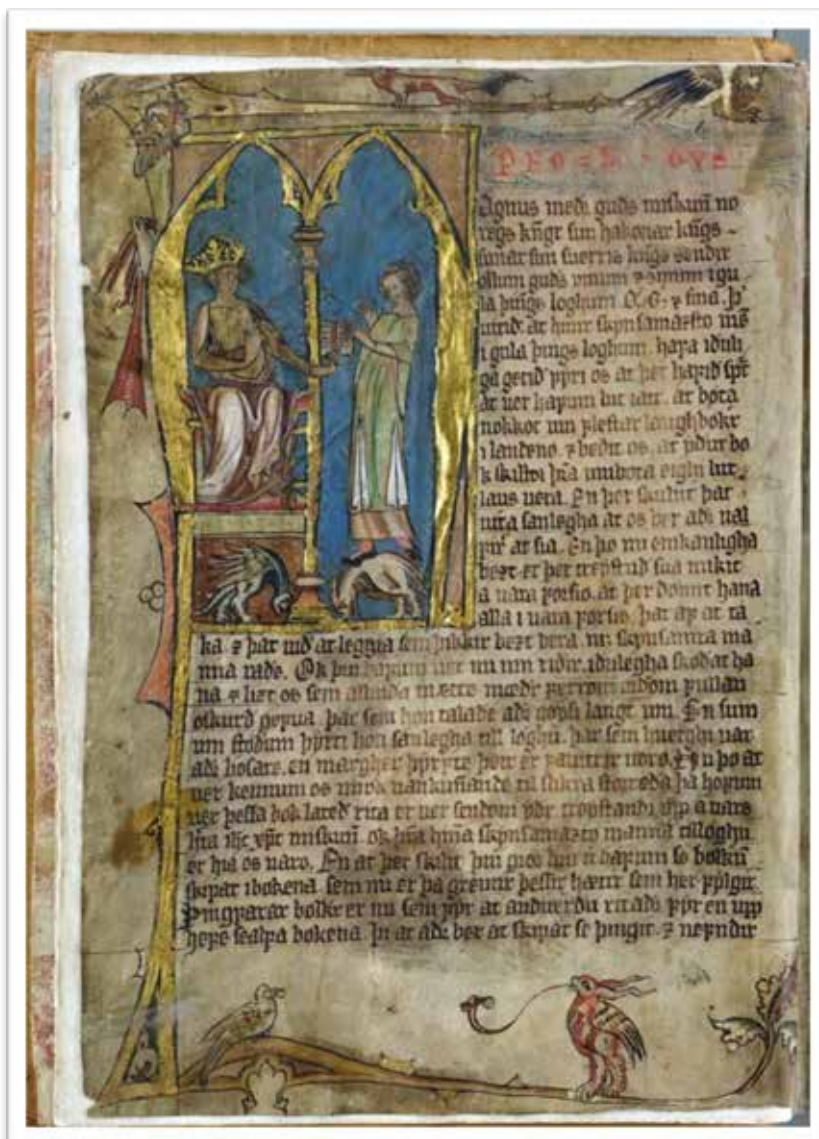 PROLOGVS
agnus medr guds miskunn no
regs kongr sun hakonar kongs
sunar sun suerris kongs sendir
ollum guds vinum ⁊ sinum i gu
la þings loghum Q. G. ⁊ sina. þ'
uitid. at hinir skynsamazsto men
i gula þings loghum. hafa iduli
ga getid fyri os at þer hafid spt
at uer hafum lut i att. at bøta
nokkot um flestar loughbøkr
i landeno. ⁊ bedit os. at ydur bo
k skilldi hia umbota eighi lut
laus uera. En þer skulut þat
uita sanlegha at os ber adr uæl
fir at sia. En þo nu einkanligha
bezt er þer treystud sua mikit
a uara forsio. at þer domut hana
alla i uara forsio. þat af at ta
ka. ⁊ þat uid at leggia sem þikkir bezt bera. nr skynsamra ma
nna rade. Ok þui hafum uer nu um ridir. idulegha skodat ha
na ⁊ lizt os sem
oskurd gerua. þar sem hon talade adr langt um. En sum
um stodum þyrfti hon sanlegha till loghu. þar sem huerghi uar
adr liosare. en margher þyrfte þeir er fauitrir uoro. Ok þo at
uer kennum os miok uankunnande til slikra stor þa hofum
uer þessa bok lated rita er uer sendom ydr troystandi upp a uars
miskunn. ok hina skynsamazto manna tilloghu
er hia os uaro. En at þer skilit þui giør hui ver hafum so bolkum
skipat i bokena sem nu er þa greinir þessir hættir sem her fylgir.
Þingfarar bolkr er nu sem fyr at anduerdu ritadr fyr en upp
hefe sealfa bokena. þui at adr ber at skipat se þingit. ⁊ nefndir